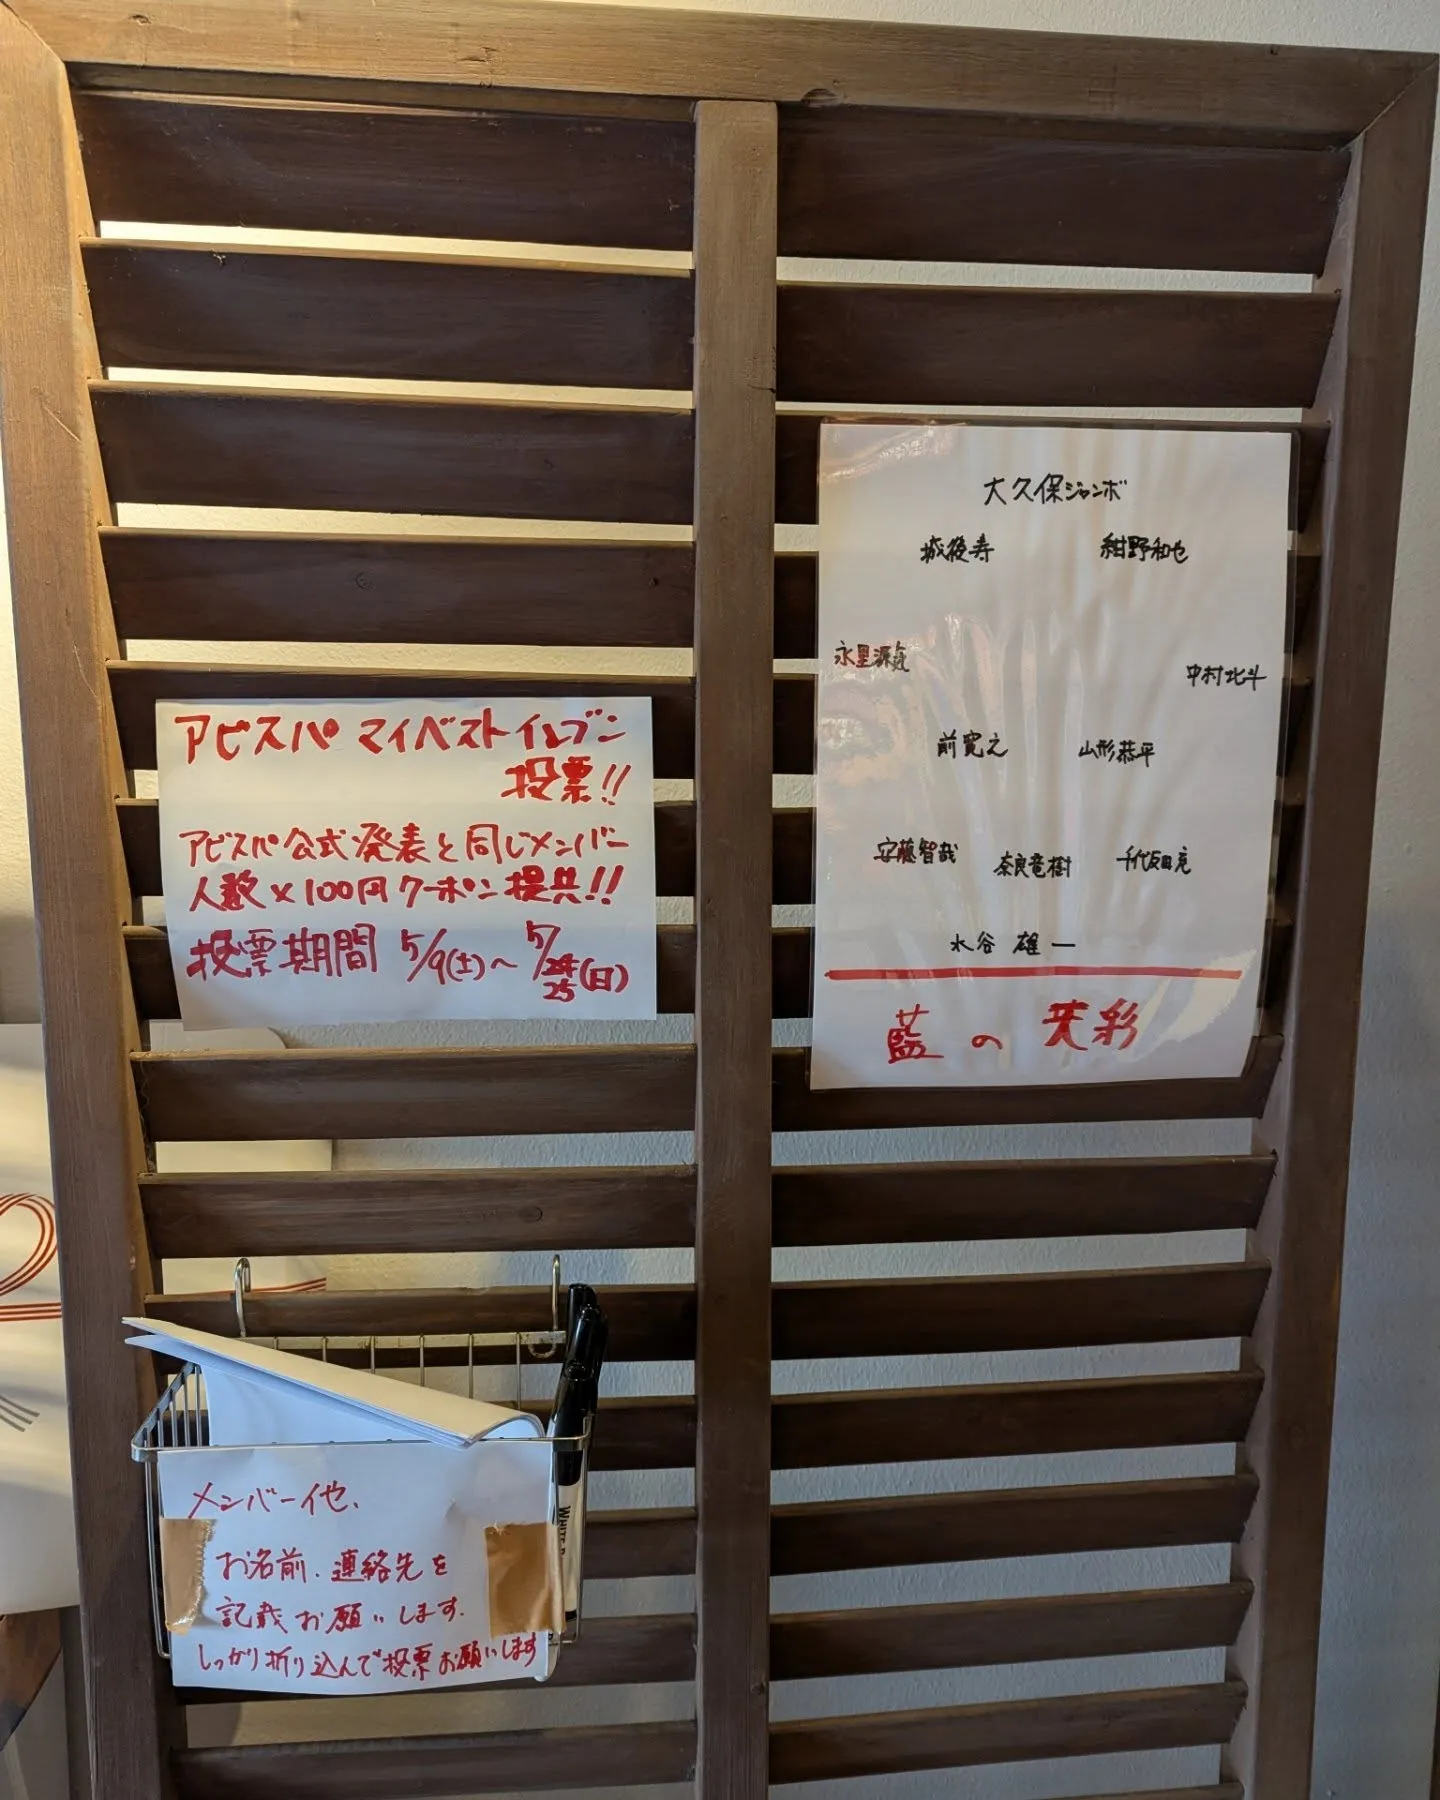 アビスパ マイベストイレブン
投票!!
アビスパ公式発表と同じメンバー
人数×100円クーポン提供!!
投票期間 5/9(土)〜 5/24(日)
25
大久保ジャンボ
城後寿 紺野和也
永里源気 中村北斗
前寛之 山形恭平
安藤智哉 奈良竜樹 千代反田充
水谷 雄一
藍の 英彩
メンバー他、
お名前、連絡先を
記載お願いします。
しっかり折り込んで投票お願いします
WHITE